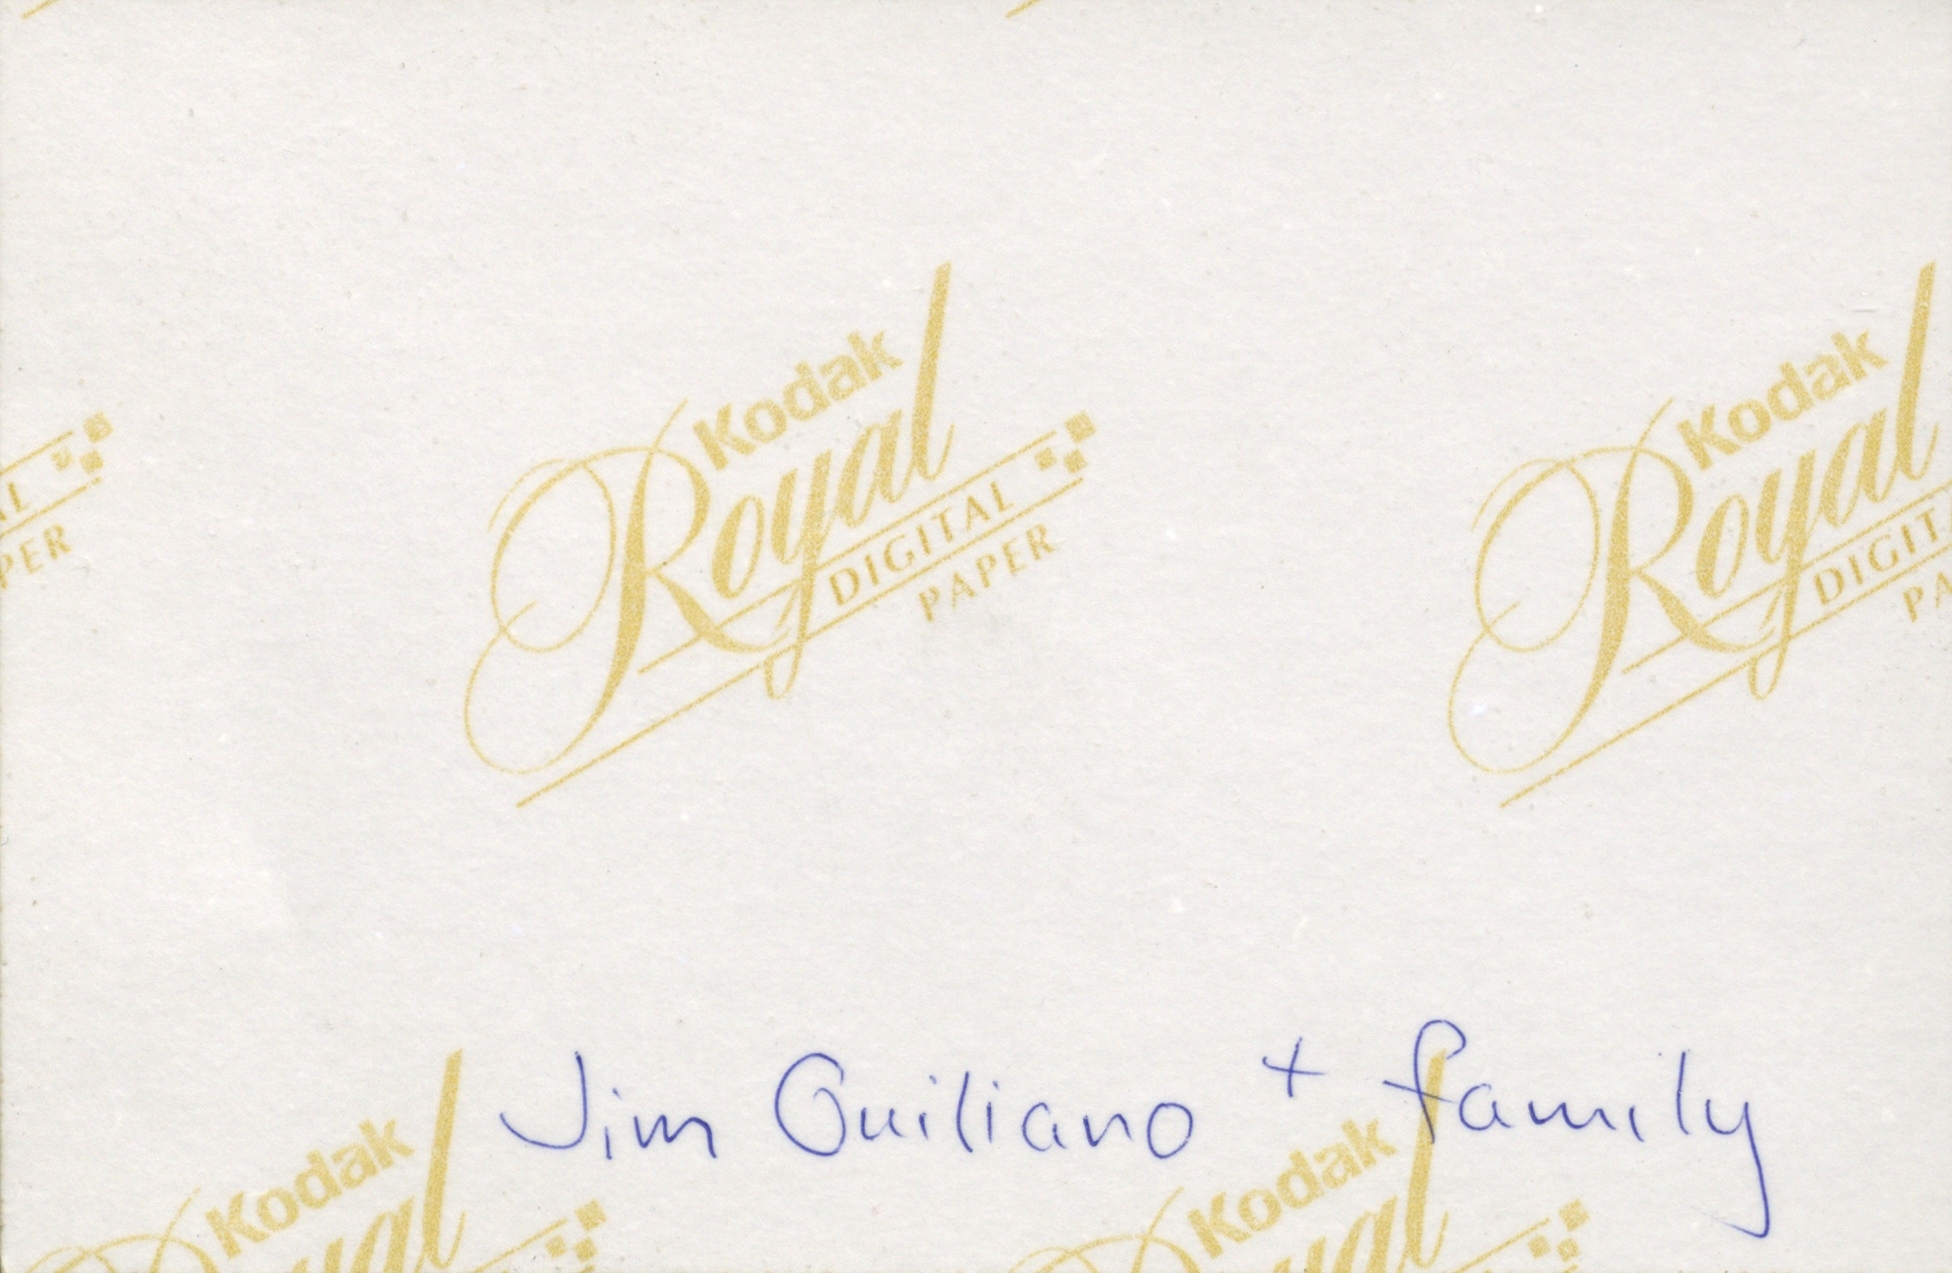 Kodak
Royal
DIGITAL
PAPER
Kodak
Royal
DIGIT
PA
AL
PER
Jim Guiliano + family
Kodak
yal
Kodak
yal